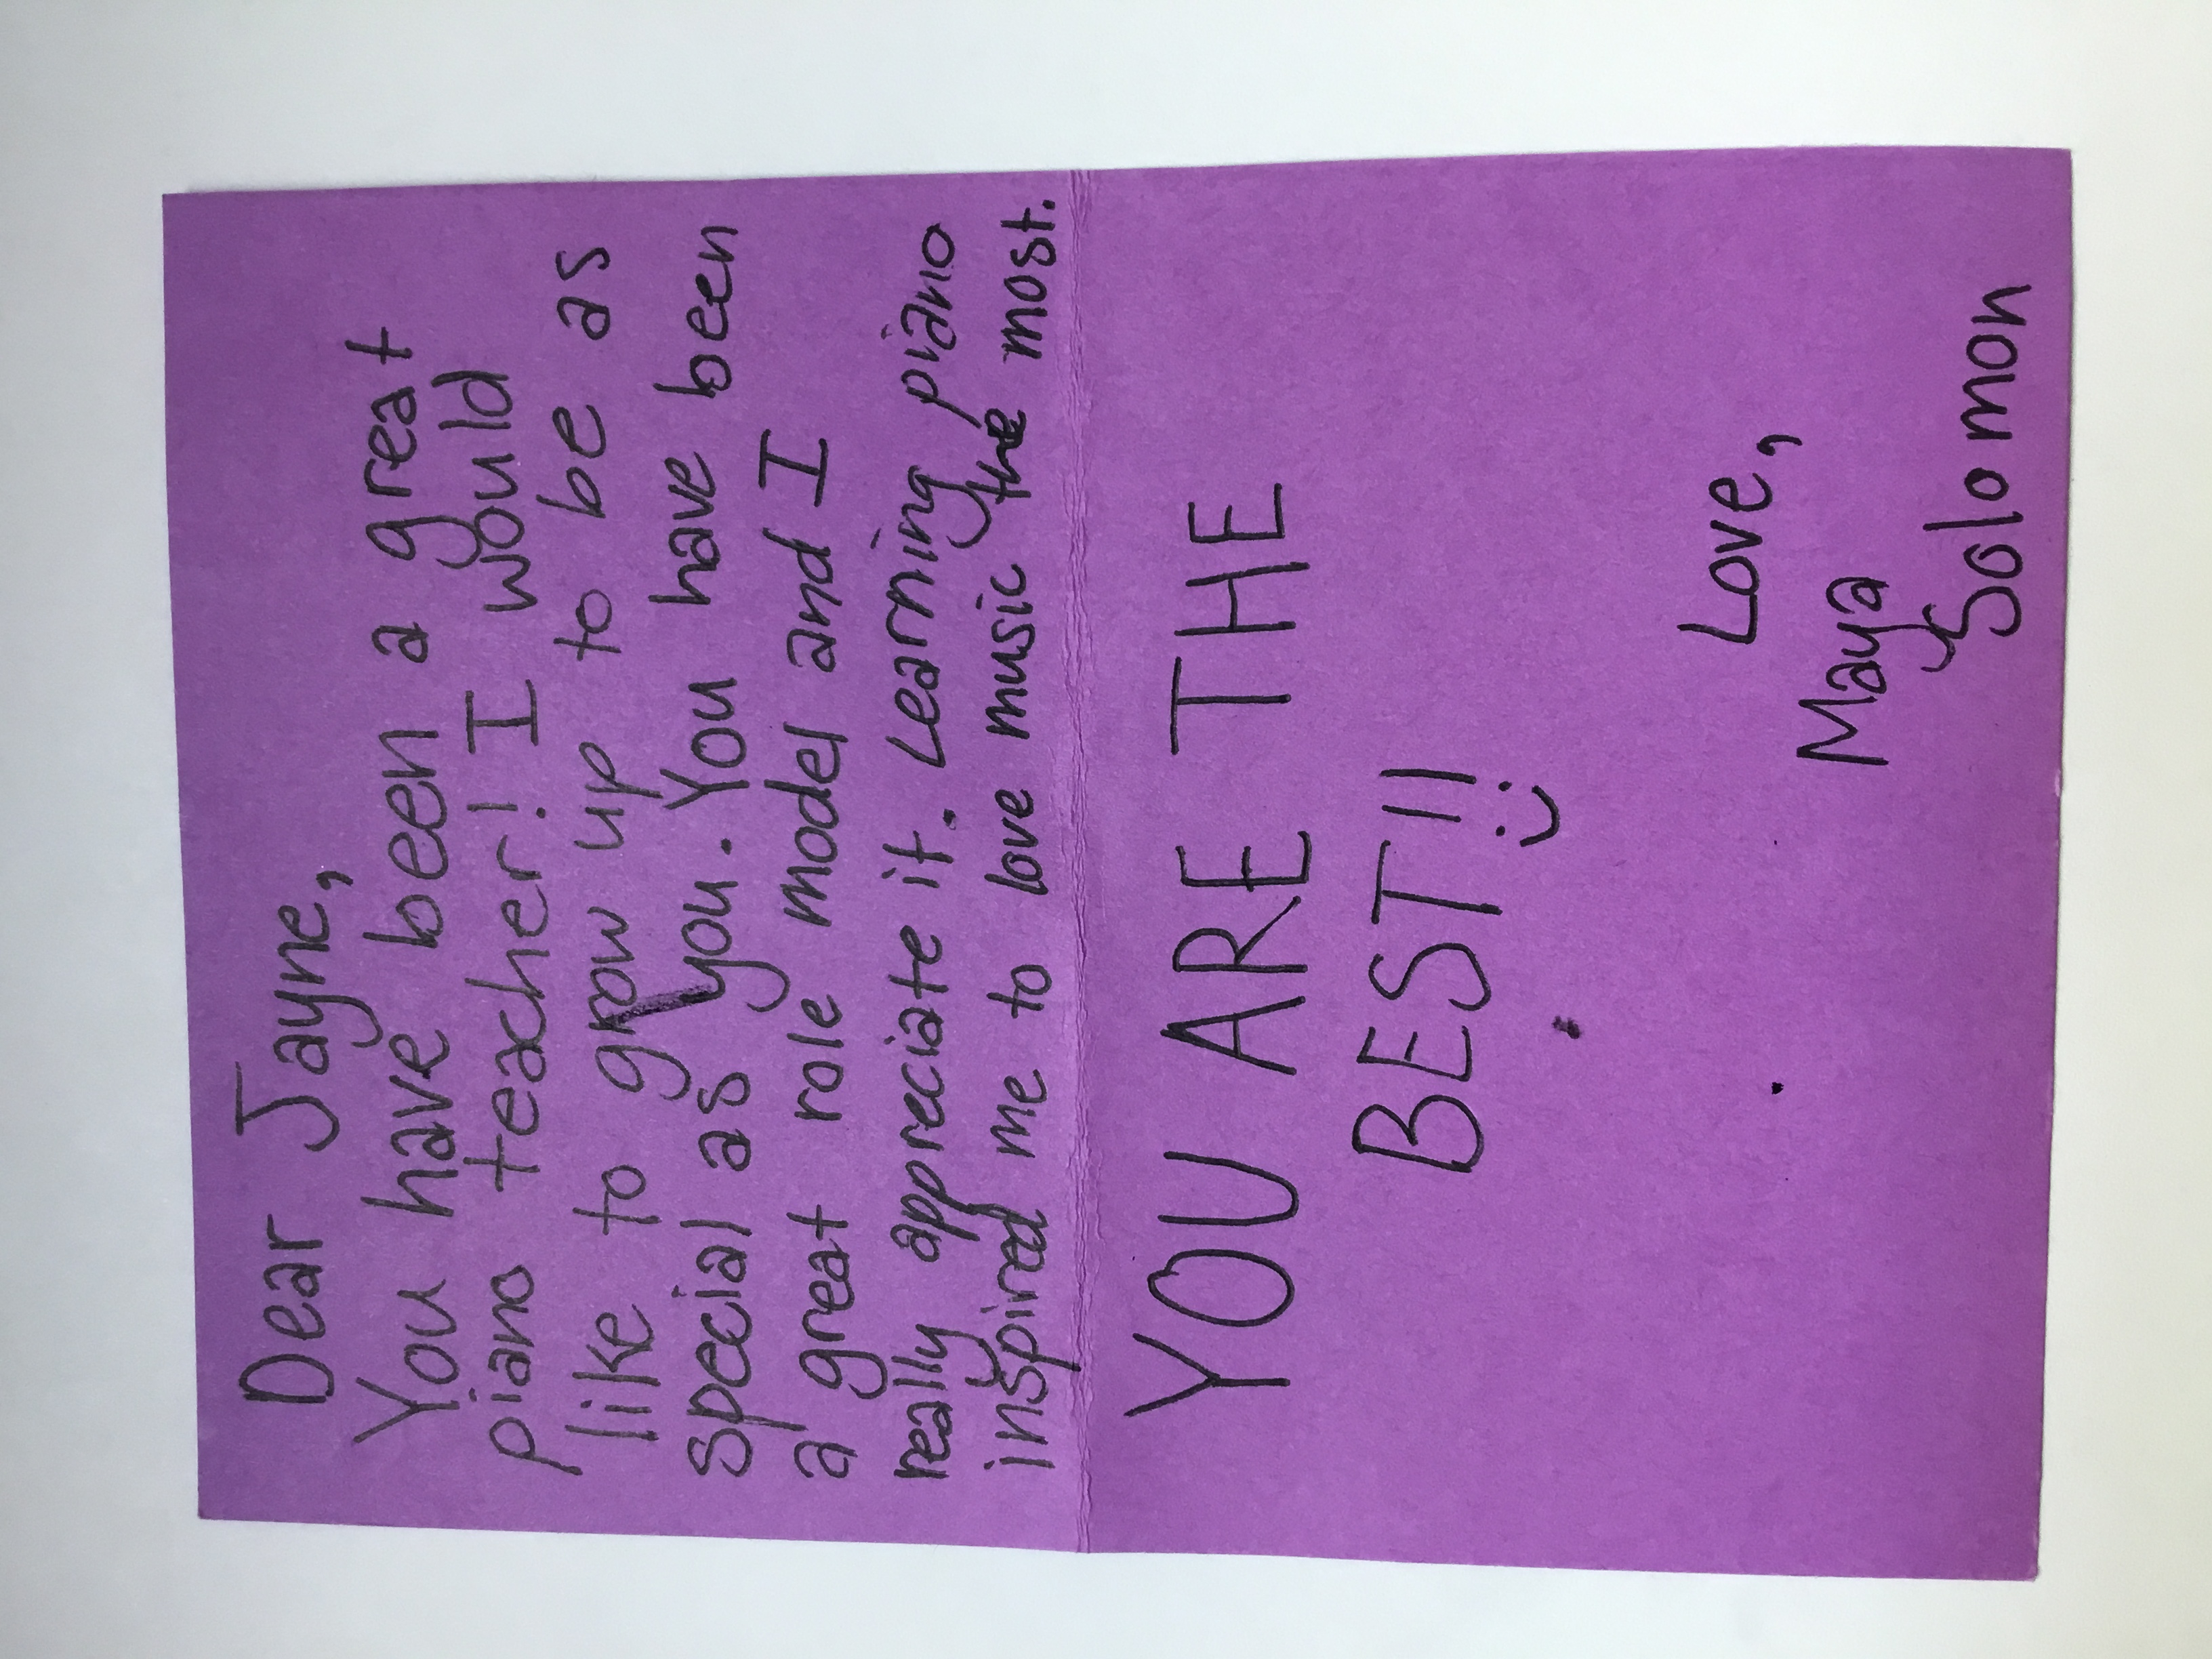 Dear Jayne,
You have been a great
piano teacher! I would
like to grow up to be as
special as you. You have been
a great role model and I
really appreciate it. Learning piano
inspired me to love music the most.
YOU ARE THE
BEST!!
:)
Love,
Maya
Solomon